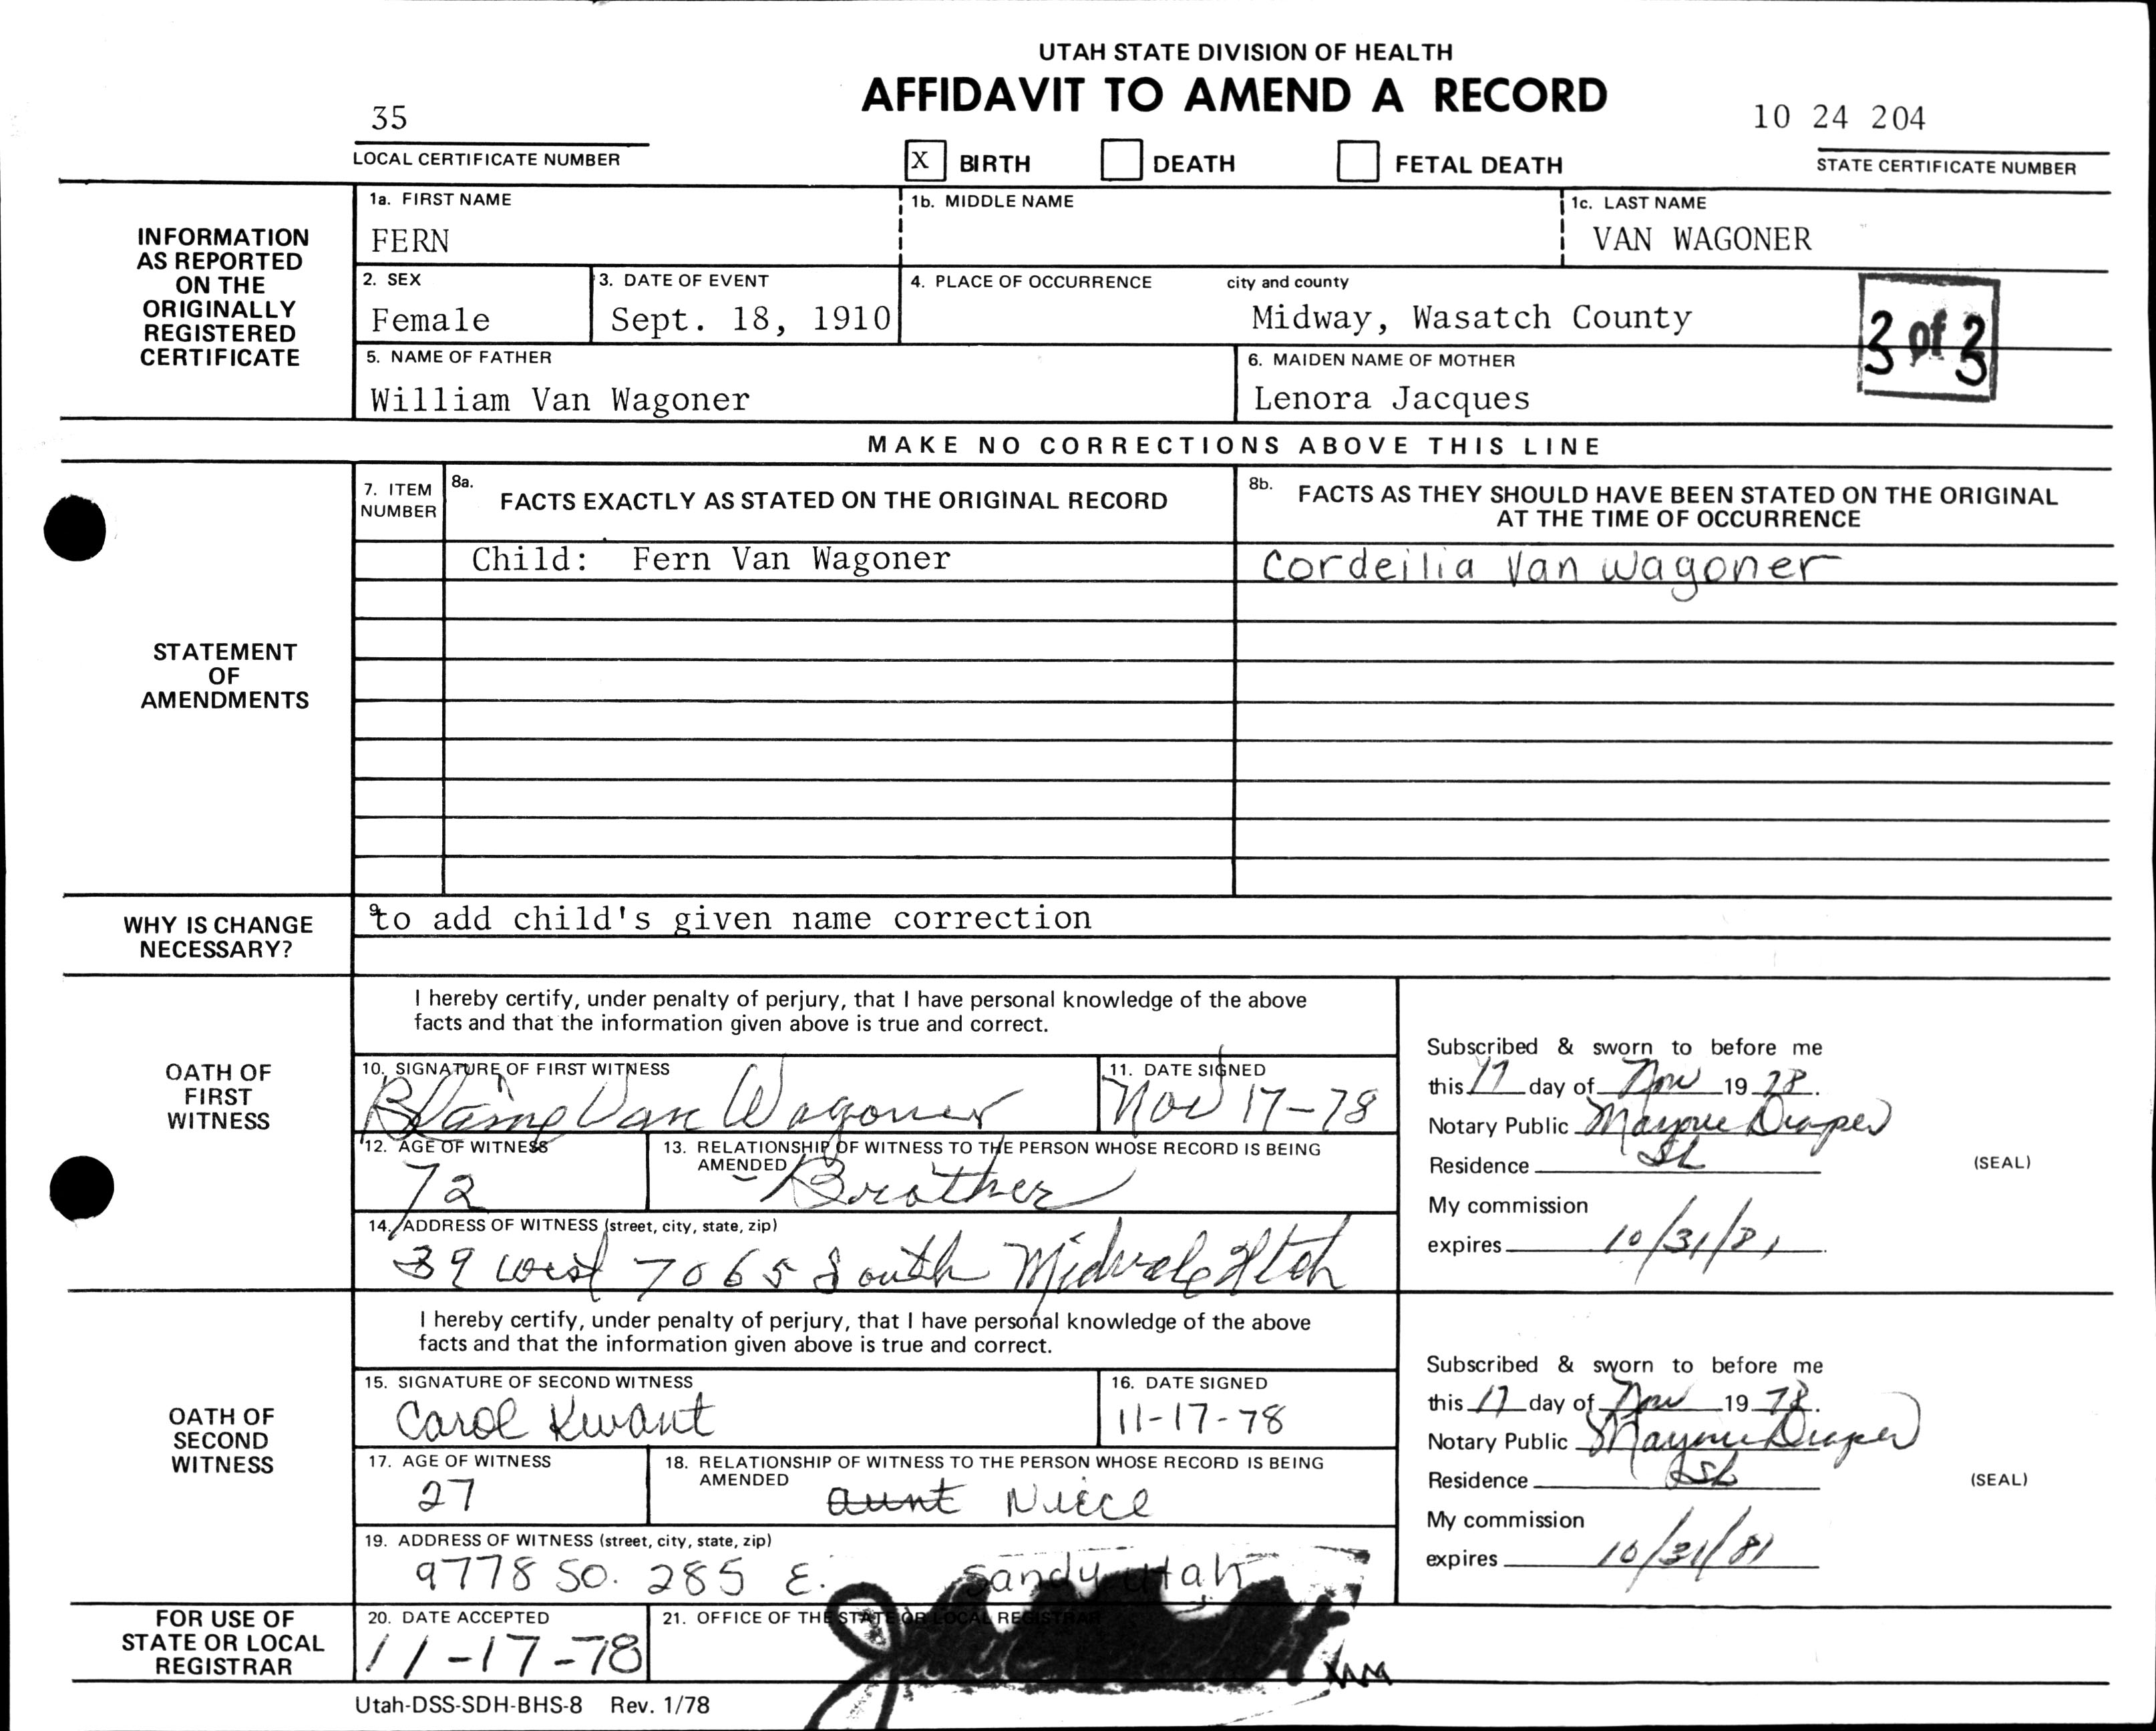 UTAH STATE DIVISION OF HEALTH
AFFIDAVIT TO AMEND A RECORD
35
LOCAL CERTIFICATE NUMBER
X BIRTH DEATH FETAL DEATH
10 24 204
STATE CERTIFICATE NUMBER
INFORMATION AS REPORTED ON THE ORIGINALLY REGISTERED CERTIFICATE
1a. FIRST NAME
FERN
1b. MIDDLE NAME
1c. LAST NAME
VAN WAGONER
2. SEX
Female
3. DATE OF EVENT
Sept. 18, 1910
4. PLACE OF OCCURRENCE city and county
Midway, Wasatch County
3 of 3
5. NAME OF FATHER
William Van Wagoner
6. MAIDEN NAME OF MOTHER
Lenora Jacques
MAKE NO CORRECTIONS ABOVE THIS LINE
STATEMENT OF AMENDMENTS
7. ITEM NUMBER
8a. FACTS EXACTLY AS STATED ON THE ORIGINAL RECORD
8b. FACTS AS THEY SHOULD HAVE BEEN STATED ON THE ORIGINAL
AT THE TIME OF OCCURRENCE
Child: Fern Van Wagoner
Cordeilia Van Wagoner
WHY IS CHANGE NECESSARY?
9 to add child's given name correction
OATH OF FIRST WITNESS
I hereby certify, under penalty of perjury, that I have personal knowledge of the above
facts and that the information given above is true and correct.
10. SIGNATURE OF FIRST WITNESS
Blaine Van Wagoner
11. DATE SIGNED
Nov 17-78
12. AGE OF WITNESS
72
13. RELATIONSHIP OF WITNESS TO THE PERSON WHOSE RECORD IS BEING
AMENDED Brother
14. ADDRESS OF WITNESS (street, city, state, zip)
39 west 7065 South Midvale Utah
Subscribed & sworn to before me
this 17 day of Nov 19 78.
Notary Public Mayme Draper
Residence SL
(SEAL)
My commission
expires 10/31/81
OATH OF SECOND WITNESS
I hereby certify, under penalty of perjury, that I have personal knowledge of the above
facts and that the information given above is true and correct.
15. SIGNATURE OF SECOND WITNESS
Carol Kwant
16. DATE SIGNED
11-17-78
17. AGE OF WITNESS
27
18. RELATIONSHIP OF WITNESS TO THE PERSON WHOSE RECORD IS BEING
AMENDED aunt Niece
19. ADDRESS OF WITNESS (street, city, state, zip)
9778 SO. 285 E. Sandy Utah
Subscribed & sworn to before me
this 17 day of Nov 19 78.
Notary Public Mayme Draper
Residence SL
(SEAL)
My commission
expires 10/31/81
FOR USE OF STATE OR LOCAL REGISTRAR
20. DATE ACCEPTED
11-17-78
21. OFFICE OF THE STATE OR LOCAL REGISTRAR
Utah-DSS-SDH-BHS-8 Rev. 1/78